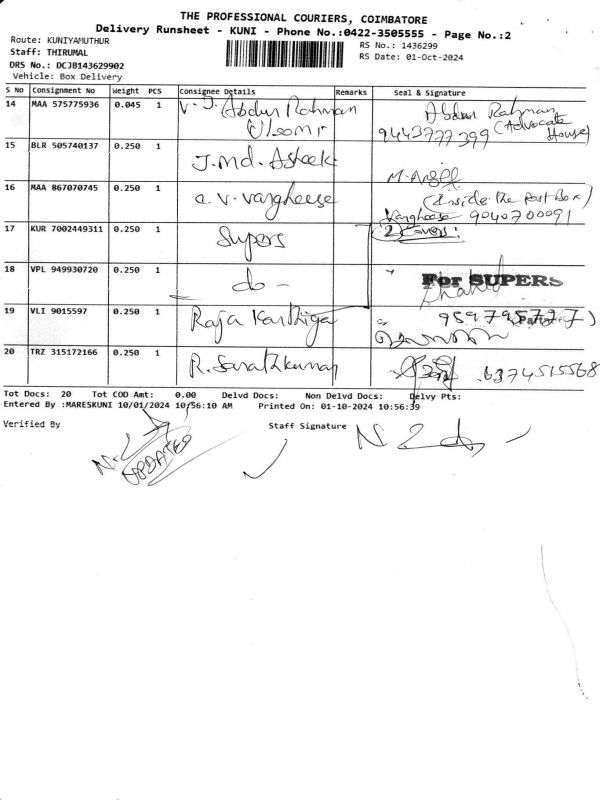 THE PROFESSIONAL COURIERS, COIMBATORE
Delivery Runsheet - KUNI - Phone No.:0422-3505555 - Page No.:2
Route: KUNIYAMUTHUR
RS No.: 1436299
Staff: THIRUMAL
RS Date: 01-Oct-2024
DRS No.: DCJB143629902
Vehicle: Box Delivery
S No Consignment No Weight PCS Consignee Details Remarks Seal & Signature
14 MAA 575775936 0.045 1 V. J. Abdur Rahman Abdur Rahman
(Advocate House)
9443777399
15 BLR 505740137 0.250 1 J. Md. Asheek
16 MAA 867070745 0.250 1 a. v. vargheese (Inside the Post Box)
Vargheese 9040700091
17 KUR 7002449311 0.250 1 Supers (2) Covers:
18 VPL 949930720 0.250 1 do - For SUPERS
19 VLI 9015597 0.250 1 Raja Karthiga
20 TRZ 315172166 0.250 1 R. Sarathkumar 6374515568
Tot Docs: 20 Tot COD Amt: 0.00 Delvd Docs: Non Delvd Docs: Delvy Pts:
Entered By :MARESKUNI 10/01/2024 10:56:10 AM Printed On: 01-10-2024 10:56:39
Verified By Staff Signature
UPDATED